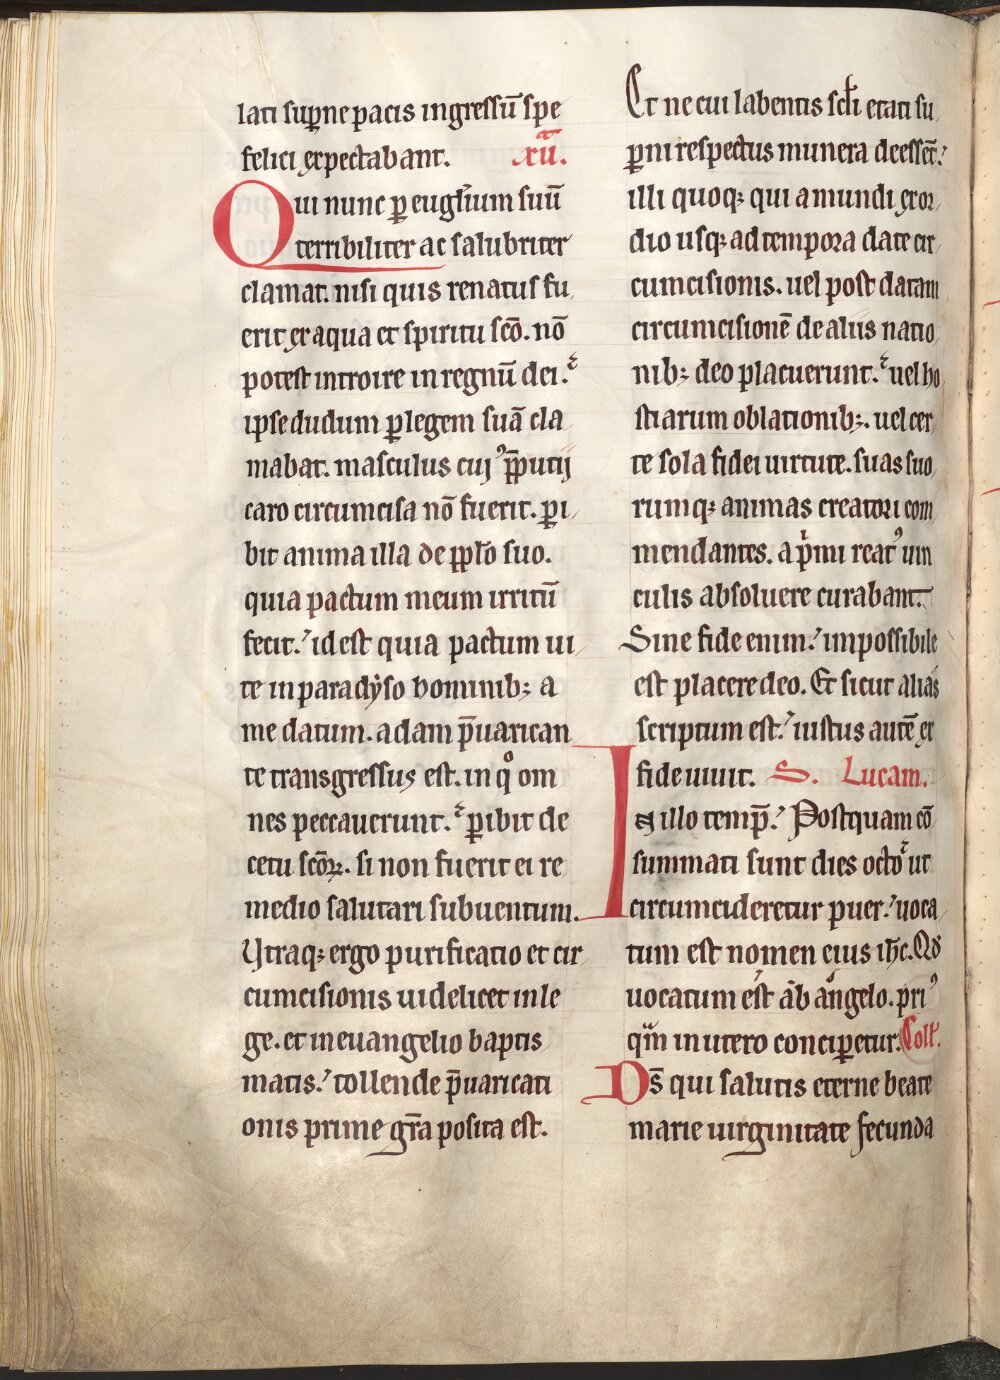 lati sup̱ne pacis ingressū spe
felici expectabant. xii.
Qui nunc p̱ eugłium suū
terribiliter ac salubriter
clamat. nisi quis renatus fu
erit ex aqua et spiritu scō. nō
potest introire in regnū dei.
ipse dudum p̱ legem suā cla
mabat. masculus cuiꝰ p̄putij
caro circumcisa nō fuerit. p̱i
bit anima illa de pp̱lo suo.
quia pactum meum irritū
fecit. id est quia pactum ui
te in paradẏso hominib; a
me datum. adam p̄uarican
te transgressus est. in qͦ om
nes peccauerunt. p̱ibit de
cetu scōꝝ. si non fuerit ei re
medio salutari subuentum.
Vtraq; ergo purificatio et cir
cumcisionis uidelicet in le
ge. et in euangelio baptis
matis. tollende p̄uaricati
onis prime gr̄a posita est.
Et ne cui labentis scłi etati su
p̱ni respectus munera deessēt.
illi quoq; qui a mundi exor
dio usq; ad tempora date cir
cumcisionis. uel post datam
circumcisionē de aliis natio
nib; deo placuerunt. uel ho
stiarum oblationib;. uel cer
te sola fidei uirtute. suas suo
rumq; animas creatori com
mendantes. a pͥmi reatꝰ uin
culis absoluere curabant.
Sine fide enim. impossibile
est placere deo. Et sicut alias
scriptum est. iustus autē ex
fide uiuit. S. Lucam.
In illo temp̄. Postquam cō
summati sunt dies octo ut
circumcideretur puer. uoca
tum est nomen eius ihc̄. Qd̄
uocatum est ab angelo. priꝰ
qm̄ in utero concip̱etur. Coll'.
Ds̄ qui salutis eterne beate
marie uirginitate fecunda